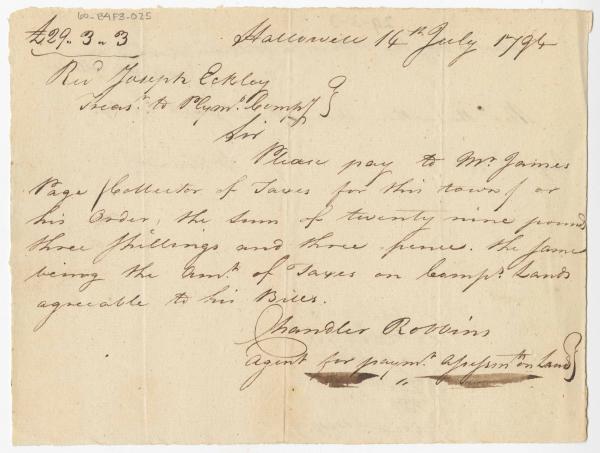 60-B4F3-025
£29. 3 .. 3
Hallowell 14th July 1794
Revd Joseph Eckley
Treasr to Plymo Compy }
Sir
Please pay to Mr James
Page (Collector of Taxes for this town) or
his Order, the sum of twenty nine pounds
three shillings and three pence. the same
being the Amt. of Taxes on Compys Lands
agreeable to his Bills.
Chandler Robbins
Agent for paymt. assessmts on Lands }